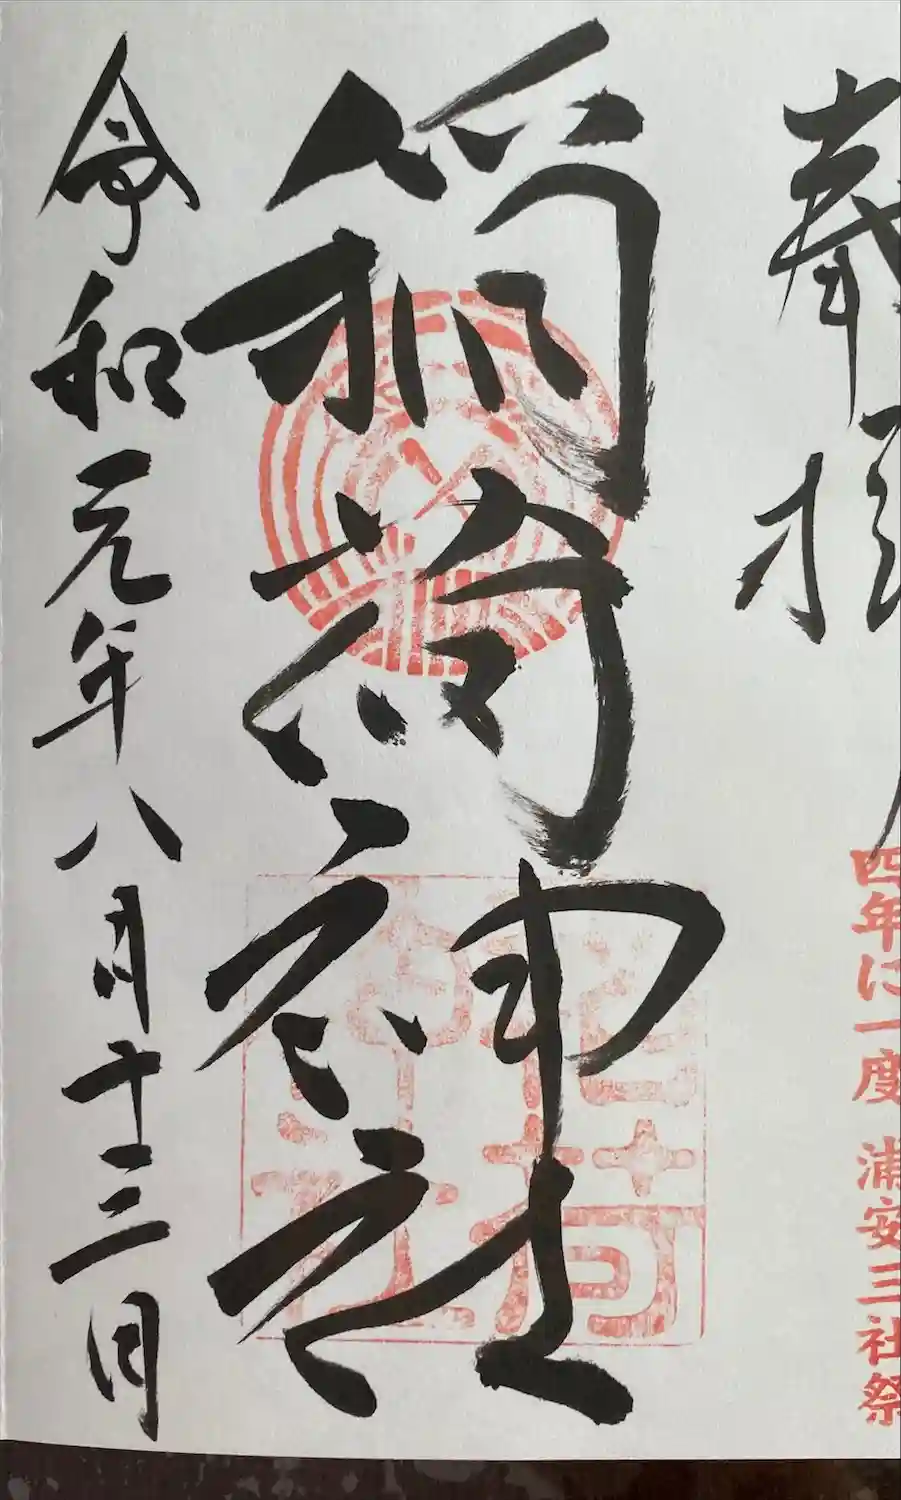 奉拝
四年に一度 浦安三社祭
稲荷神社
稲荷神社
令和元年八月十三日